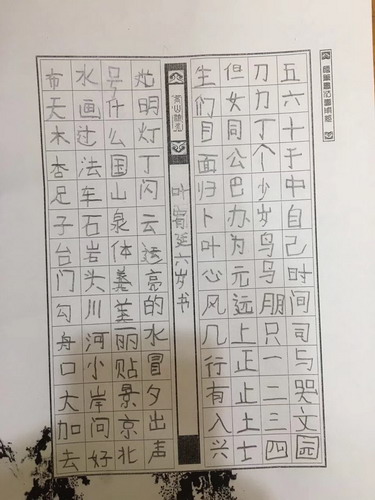 五六十于中自己时间司与哭文园
刀力丁个少岁鸟乌朋只一二三四
但女同公巴办为元远上正止土士
生们目面归卜叶心风几行有入兴
叶宥廷六岁书
灿明灯丁闪云运亮的水冒夕出声
号什么国山泉体善美丽贴景京北
水画过法车石岩头川河小岸问好
布天木杏足子台门勾舟口大加去